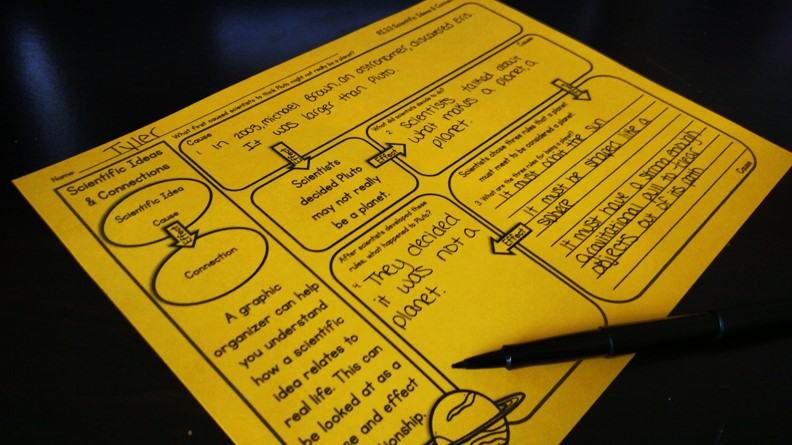 Name Tyler
RI.3.3 Scientific Ideas &
Scientific Ideas
& Connections
Scientific Idea
Cause
Effect
Connection
A graphic
organizer can help
you understand
how a scientific
idea relates to
real life. This can
be looked at as a
se and effect
ionship.
What first caused scientists to think Pluto might not really be a planet?
Cause
1. In 2003, Michael Brown, an astronomer, discovered Eris.
It was larger than Pluto.
Effect
Scientists
decided Pluto
may not really
be a planet.
Effect
What did scientists decide to do?
Cause
2. Scientists talked about
what makes a planet, a
planet.
Scientists chose three rules that a planet
must meet to be considered a planet.
3. What are the three rules for being a planet?
It must orbit the sun
It must be shaped like a
sphere
It must have a strong enough
gravitational pull to clear
objects out of its path
Cause
Effect
After scientists developed these
rules, what happened to Pluto?
4. They decided
it was not a
planet.